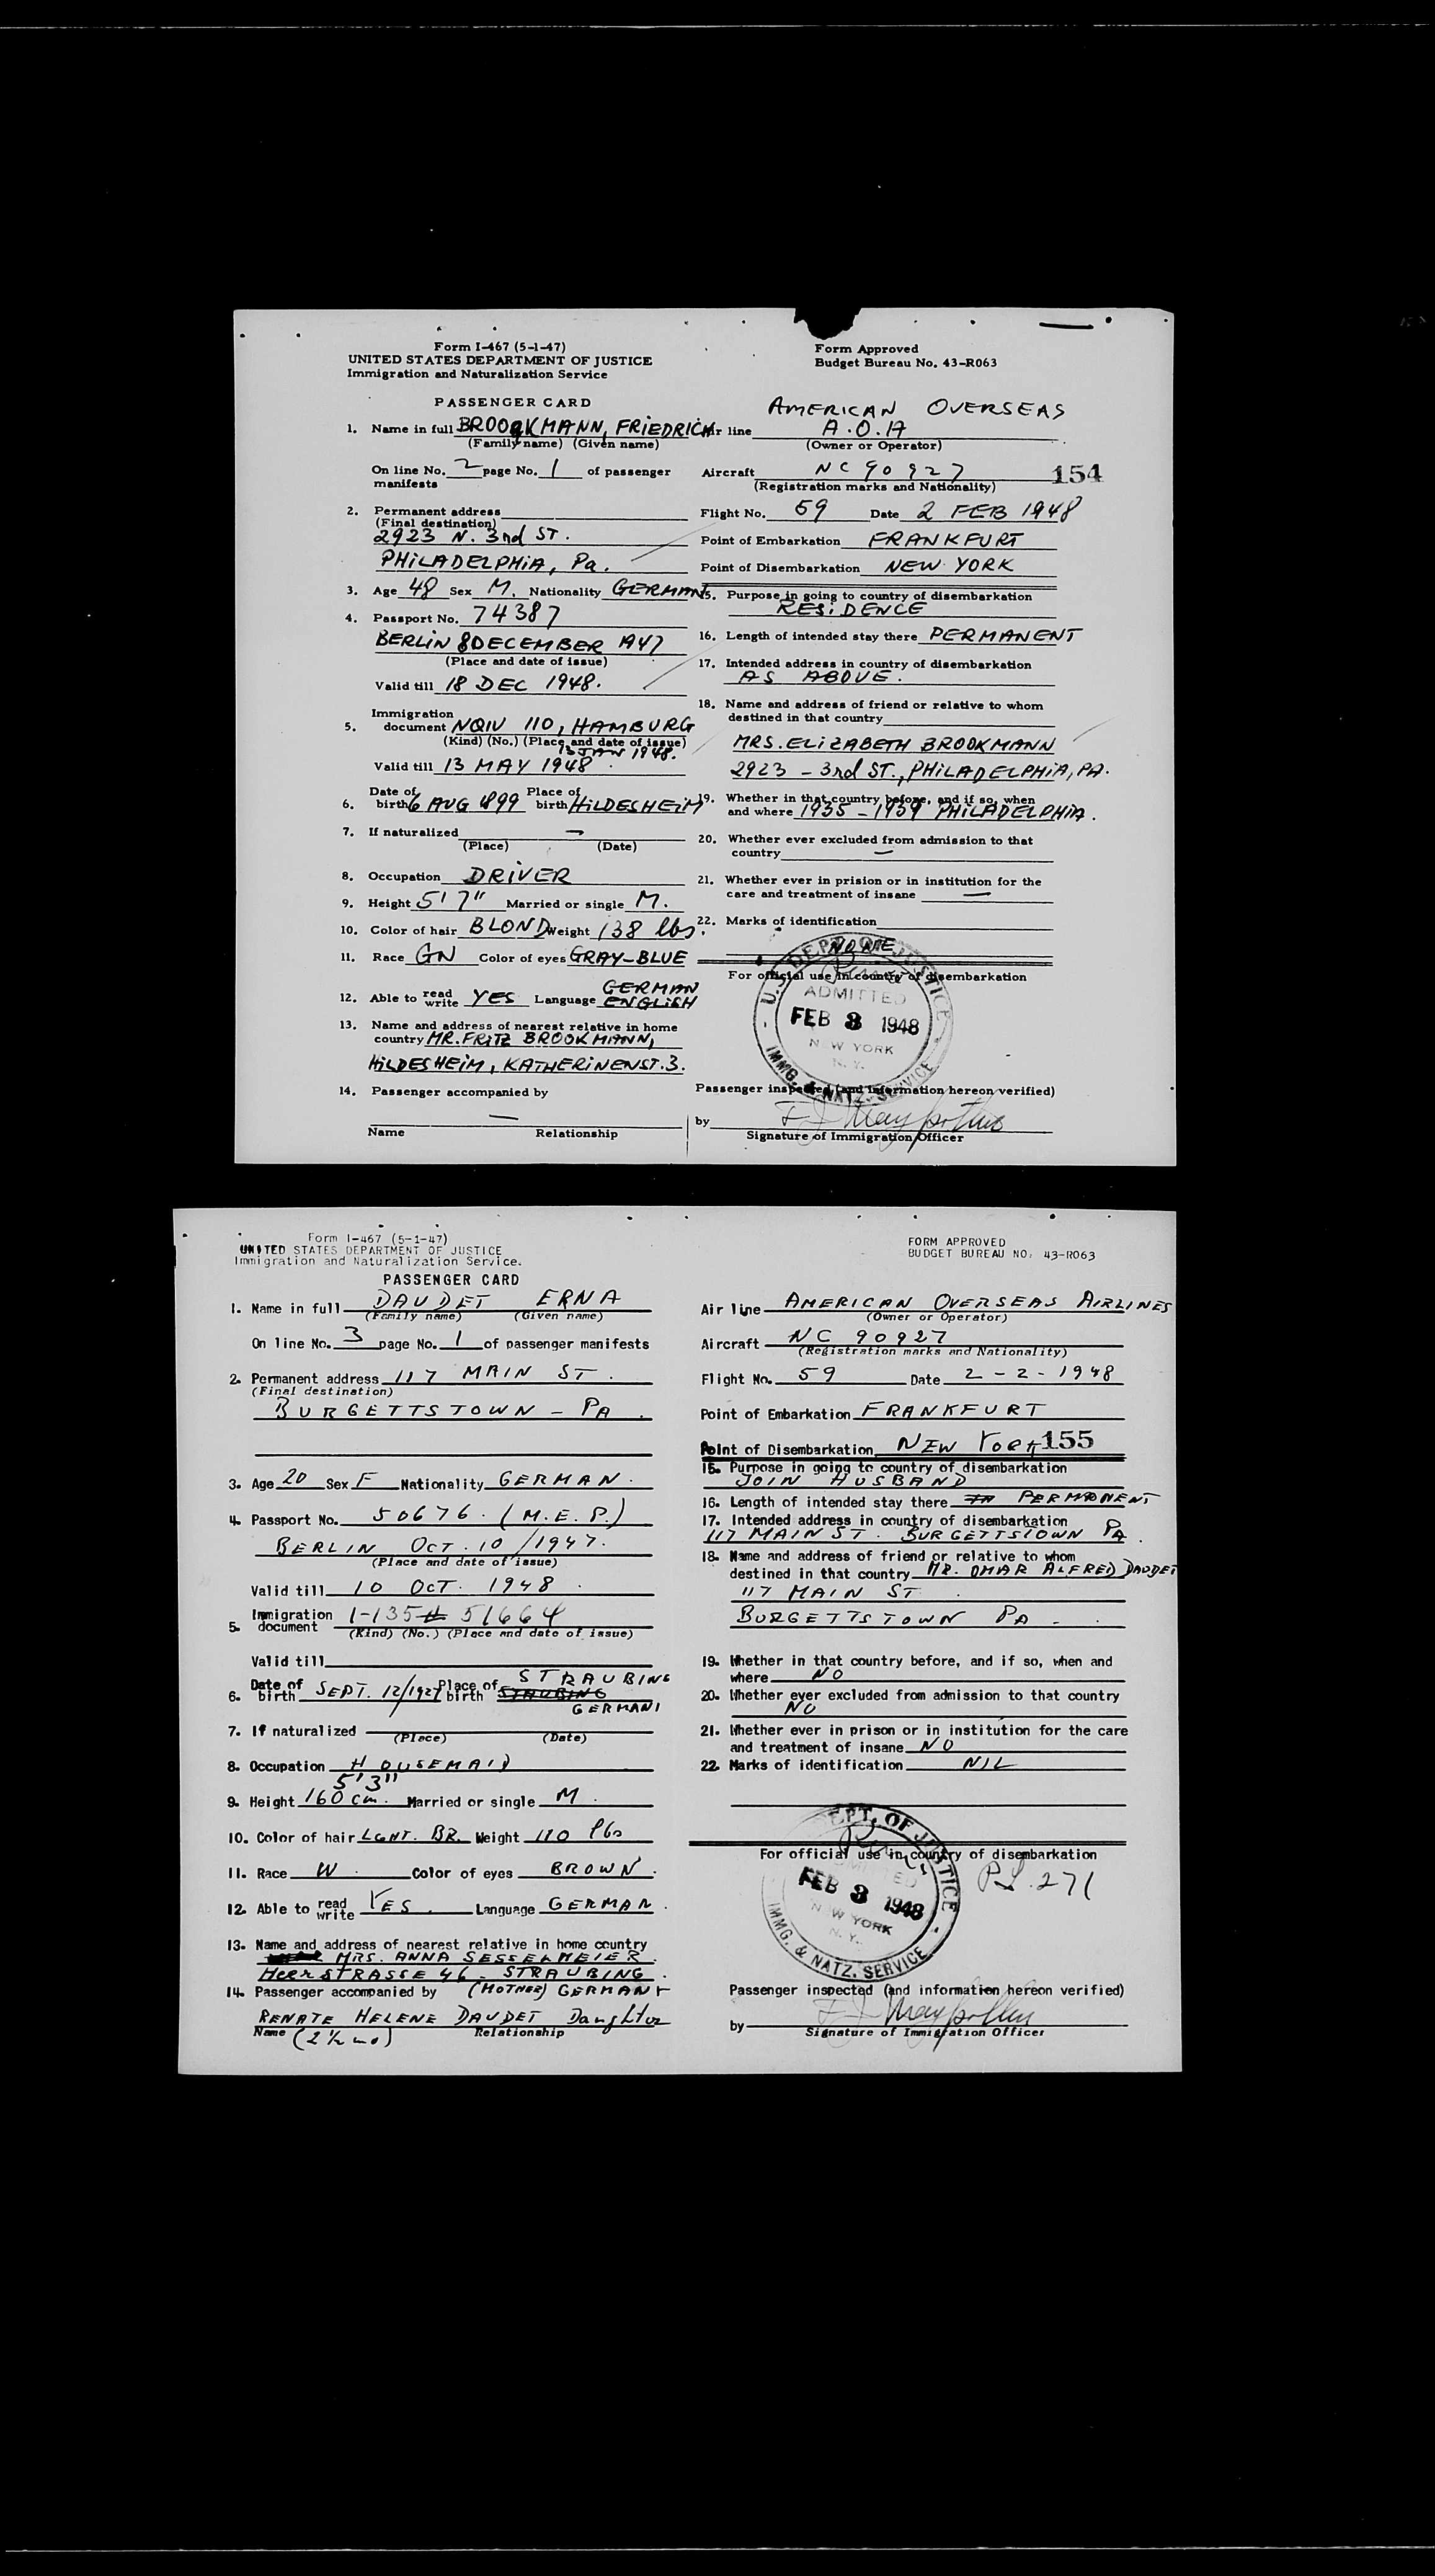 Form I-467 (5-1-47)
UNITED STATES DEPARTMENT OF JUSTICE
Immigration and Naturalization Service
Form Approved
Budget Bureau No. 43-R063
PASSENGER CARD
1. Name in full BROOKMANN, FRIEDRICH
(Family name) (Given name)
On line No. 2 page No. 1 of passenger
manifests
2. Permanent address
(Final destination)
2923 N. 3rd ST.
PHILADELPHIA, Pa.
3. Age 48 Sex M. Nationality GERMAN
4. Passport No. 74387
BERLIN 8 DECEMBER 1947
(Place and date of issue)
Valid till 18 DEC 1948.
Immigration
5. document NQIV 110, HAMBURG
(Kind) (No.) (Place and date of issue)
13 JAN 1948.
Valid till 13 MAY 1948
6. Date of birth 6 AUG 1899 Place of birth HILDESHEIM
7. If naturalized —
(Place) (Date)
8. Occupation DRIVER
9. Height 5' 7" Married or single M.
10. Color of hair BLOND Weight 138 lbs.
11. Race GN Color of eyes GRAY-BLUE
12. Able to read write YES Language GERMAN ENGLISH
13. Name and address of nearest relative in home
country MR. FRITZ BROOKMANN,
HILDESHEIM, KATHERINENST. 3.
14. Passenger accompanied by
—
Name Relationship
AMERICAN OVERSEAS
Air line A.O.A
(Owner or Operator)
Aircraft NC 90927
154
(Registration marks and Nationality)
Flight No. 59 Date 2 FEB 1948
Point of Embarkation FRANKFURT
Point of Disembarkation NEW YORK
15. Purpose in going to country of disembarkation
RESIDENCE
16. Length of intended stay there PERMANENT
17. Intended address in country of disembarkation
AS ABOVE.
18. Name and address of friend or relative to whom
destined in that country
MRS. ELIZABETH BROOKMANN
2923 - 3rd ST., PHILADELPHIA, PA.
19. Whether in that country before, and if so, when
and where 1935 - 1939 PHILADELPHIA.
20. Whether ever excluded from admission to that
country —
21. Whether ever in prision or in institution for the
care and treatment of insane —
22. Marks of identification
NONE
For official use in country of disembarkation
U.S. DEPT. OF JUSTICE
ADMITTED
FEB 3 1948
NEW YORK
N.Y.
IMMG. & NATZ. SERVICE
Passenger inspected (and information hereon verified)
by
Signature of Immigration Officer
Form I-467 (5-1-47)
UNITED STATES DEPARTMENT OF JUSTICE
Immigration and Naturalization Service.
FORM APPROVED
BUDGET BUREAU NO. 43-R063
PASSENGER CARD
1. Name in full DAUDET ERNA
(Family name) (Given name)
On line No. 3 page No. 1 of passenger manifests
2. Permanent address 117 MAIN ST.
(Final destination)
BURGETTSTOWN - PA.
3. Age 20 Sex F Nationality GERMAN.
4. Passport No. 50676. (M.E.P.)
BERLIN OCT. 10/1947.
(Place and date of issue)
Valid till 10 OCT. 1948.
Immigration
5. document I-135 # 51664
(Kind) (No.) (Place and date of issue)
Valid till
6. Date of birth SEPT. 12/1927 Place of birth STRAUBING
GERMANY
7. If naturalized
(Place) (Date)
8. Occupation HOUSEMAID
5'3"
9. Height 160 cm. Married or single M.
10. Color of hair LGHT. BR. Weight 110 lbs
11. Race W. Color of eyes BROWN.
12. Able to read write YES. Language GERMAN.
13. Name and address of nearest relative in home country
MRS. ANNA SESSELMEIER.
HEERSTRASSE 46 - STRAUBING.
14. Passenger accompanied by (MOTHER) GERMANY
RENATE HELENE DAUDET Daughter
Name (2 ½ mo) Relationship
Air line AMERICAN OVERSEAS AIRLINES
(Owner or Operator)
Aircraft NC 90927
(Registration marks and Nationality)
Flight No. 59 Date 2-2-1948
Point of Embarkation FRANKFURT
Point of Disembarkation NEW YORK 155
15. Purpose in going to country of disembarkation
JOIN HUSBAND
16. Length of intended stay there PERMANENT
17. Intended address in country of disembarkation
117 MAIN ST. BURGETTSTOWN PA.
18. Name and address of friend or relative to whom
destined in that country MR. OMAR ALFRED DAUDET
117 MAIN ST.
BURGETTSTOWN PA -
19. Whether in that country before, and if so, when and
where NO
20. Whether ever excluded from admission to that country
NO
21. Whether ever in prison or in institution for the care
and treatment of insane NO
22. Marks of identification NIL
For official use in country of disembarkation
DEPT. OF JUSTICE
ADMITTED
FEB 3 1948
NEW YORK
N.Y.
IMMG. & NATZ. SERVICE
P.L. 271
Passenger inspected (and information hereon verified)
by
Signature of Immigration Officer